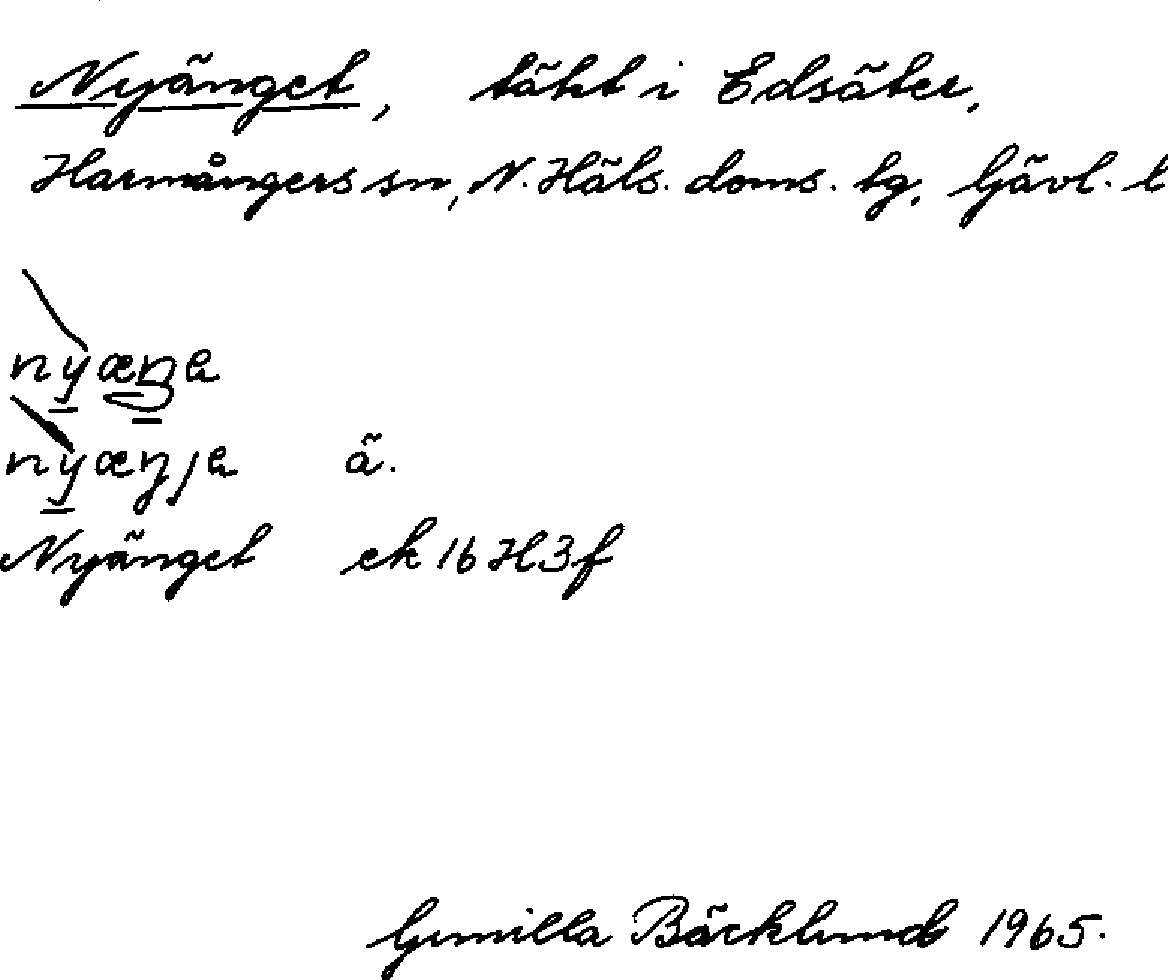 Nyänget, täkt i Edsäter,
Harmångers sn, N. Häls. doms. tg, Gävl. l
nyæŋa
nyæŋja ä.
Nyänget ek 16 H3f
Gunilla Bäcklund 1965.